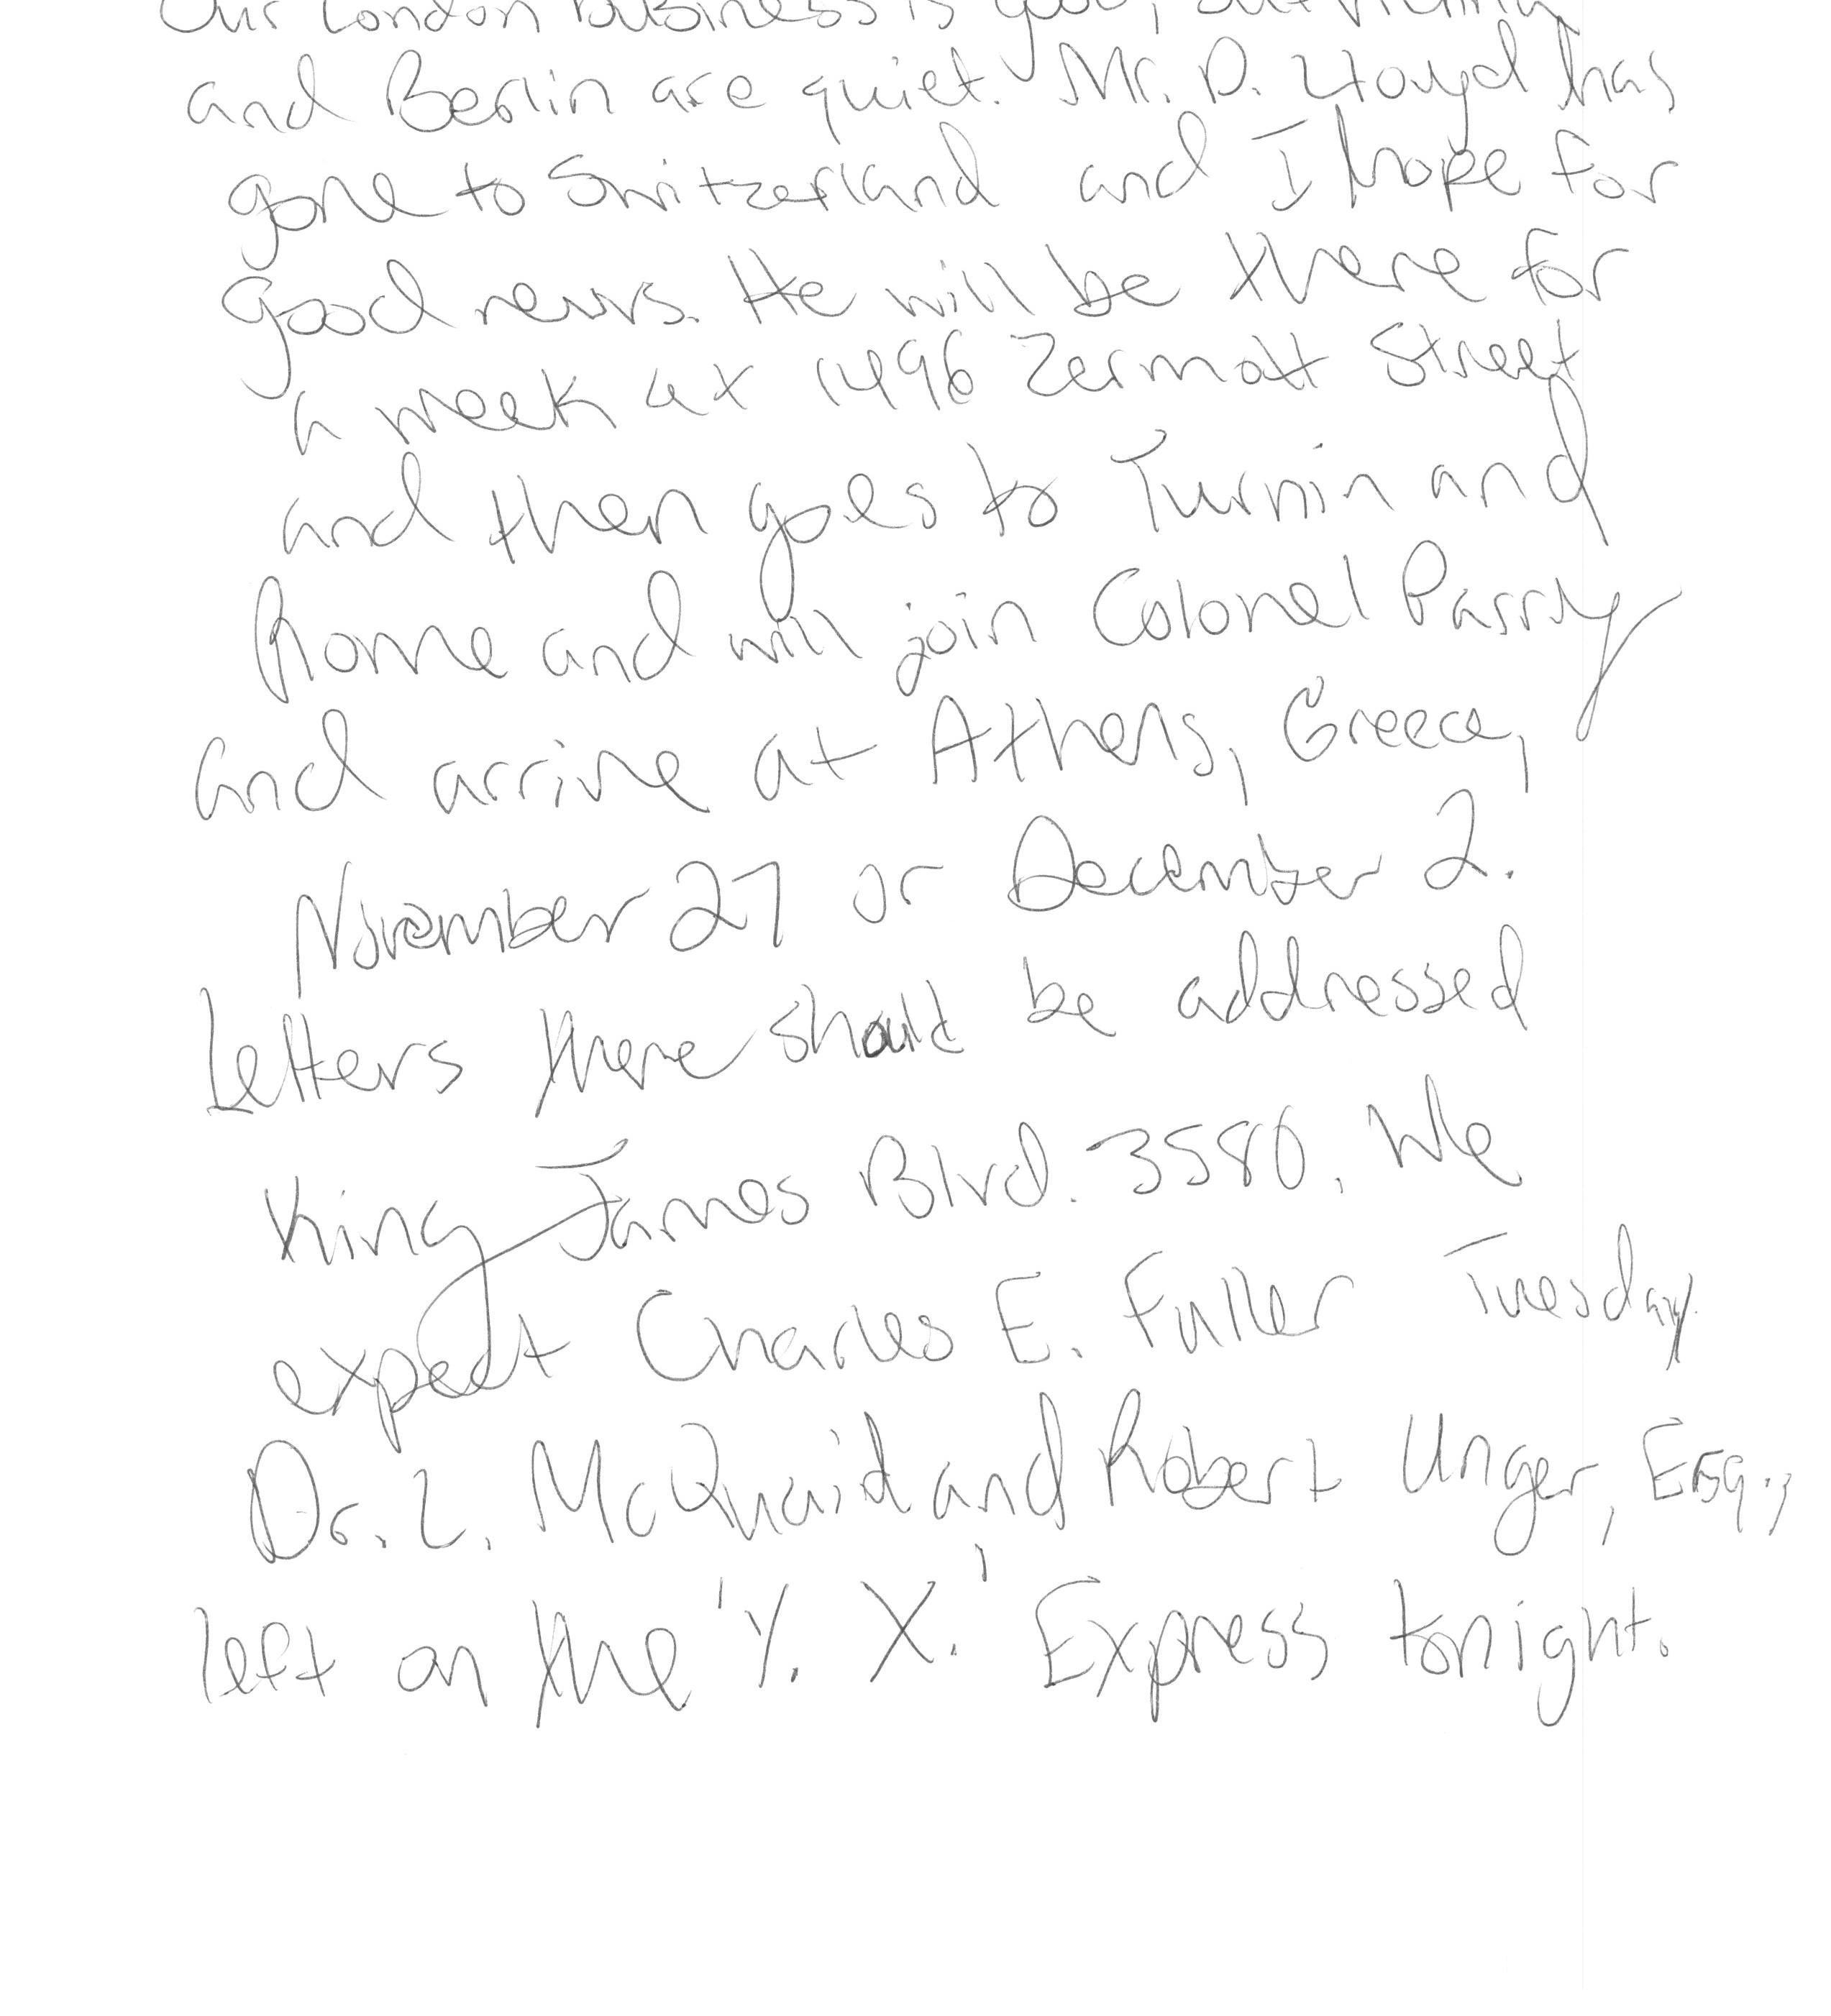 Our London business is good, but Vienna
and Berlin are quiet. Mr. D. Lloyd has
gone to Switzerland and I hope for
good news. He will be there for
a week at 1496 Zermott Street
and then goes to Turnin and
Rome and will join Colonel Parry
and arrive at Athens, Greece,
November 27 or December 2.
Letters there should be addressed
King James Blvd. 3580. We
expect Charles E. Fuller Tuesday.
Dr. L. McQuaid and Robert Unger, Esq.,
left on the 'Y. X.' Express tonight.